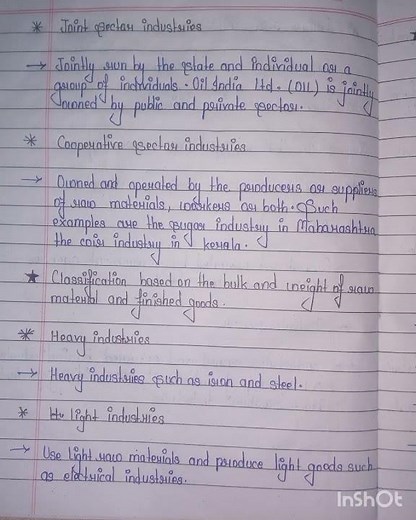 * Joint sector industries
→ Jointly run by the state and individual or a
group of individuals. Oil India Ltd. (OIL) is jointly
owned by public and private sector.
* Cooperative sector industries
→ Owned and operated by the producers or suppliers
of raw materials, workers or both. Such
examples are the sugar industry in Maharashtra
the coir industry in kerala.
★ Classification based on the bulk and weight of raw
material and finished goods.
* Heavy industries
→ Heavy industries such as iron and steel.
* light industries
→ Use light raw materials and produce light goods such
as electrical industries.
InShOt